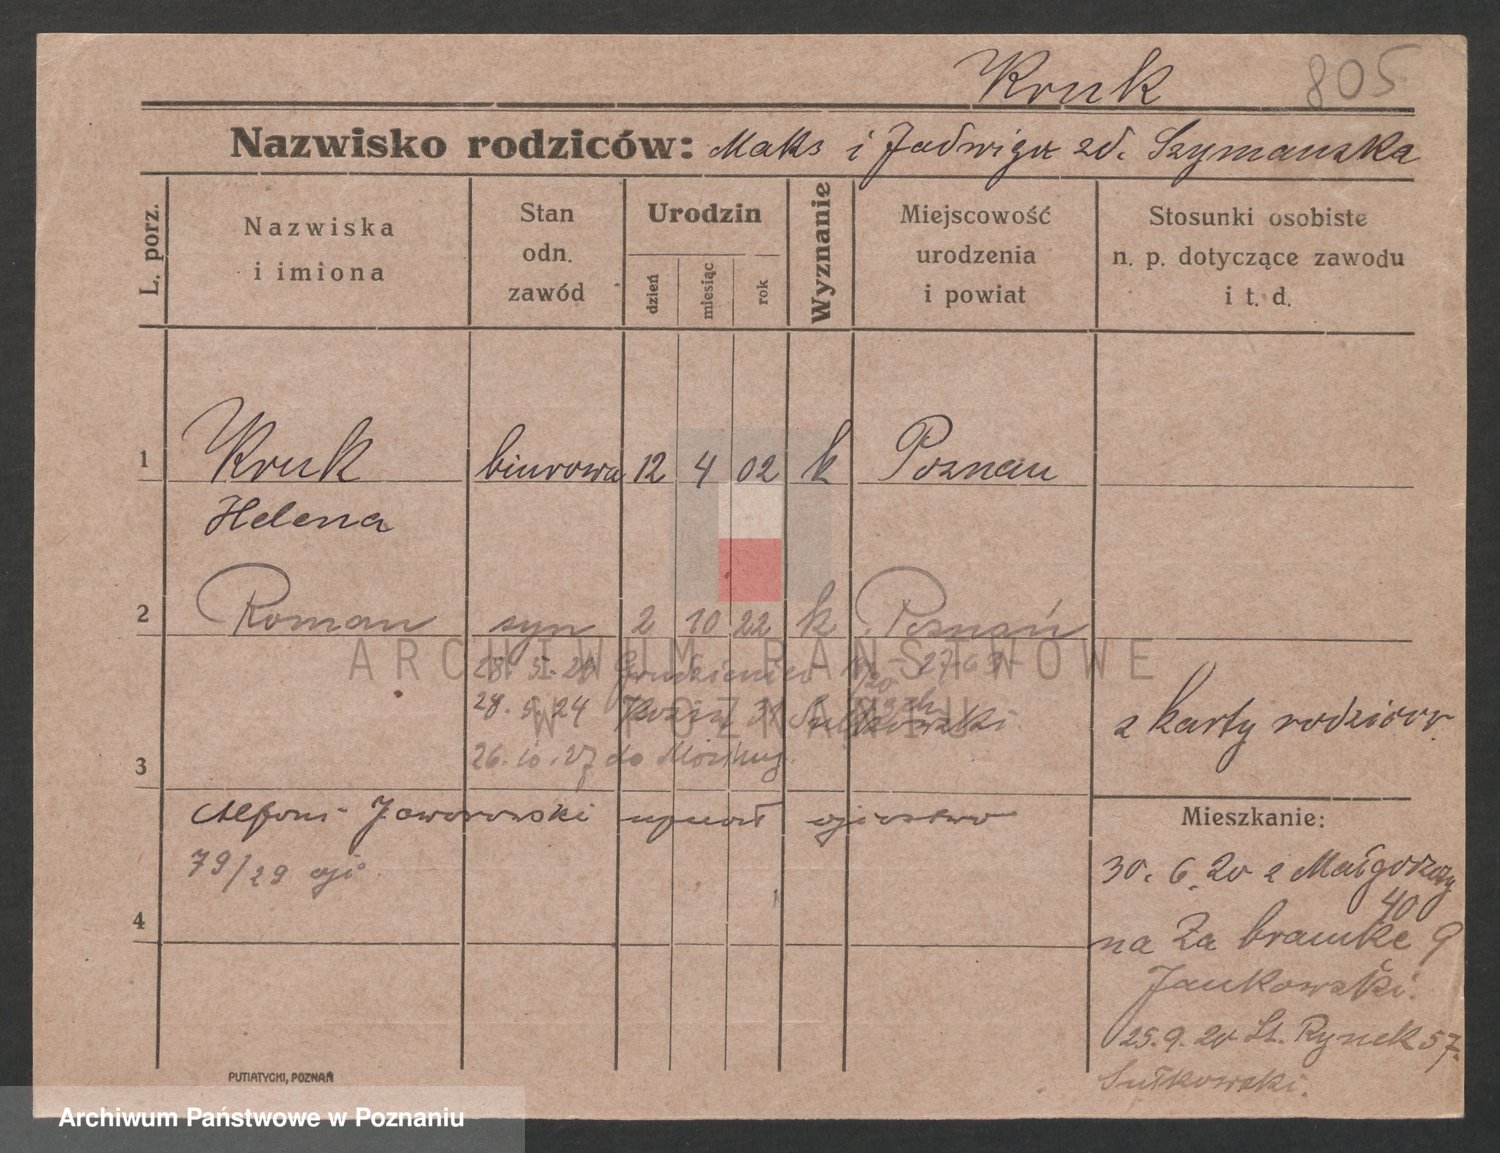 Kruk 805
Nazwisko rodziców: Maks i Jadwiga zd. Szymanska
L. porz.
Nazwiska
i imiona
Stan
odn.
zawód
Urodzin
dzień
miesiąc
rok
Wyznanie
Miejscowość
urodzenia
i powiat
Stosunki osobiste
n. p. dotyczące zawodu
i t. d.
1 Kruk biurowa 12 4 02 k Poznan
Helena
2 Roman syn 2 10 22 k Poznań
28. 5. 24
z karty rodzicow.
26. 10. 27 do
3
Alfons Jaworowski uznał ojcostwo
79/29
4
Mieszkanie:
30. 6. 20 z Małgorzaty
40
na Za bramke 9
Jankowski.
25. 9. 20 St. Rynek 57.
Sułkowski.
PUTIATYCKI, POZNAŃ
ARCHIWUM PAŃSTWOWE
W POZNANIU
Archiwum Państwowe w Poznaniu